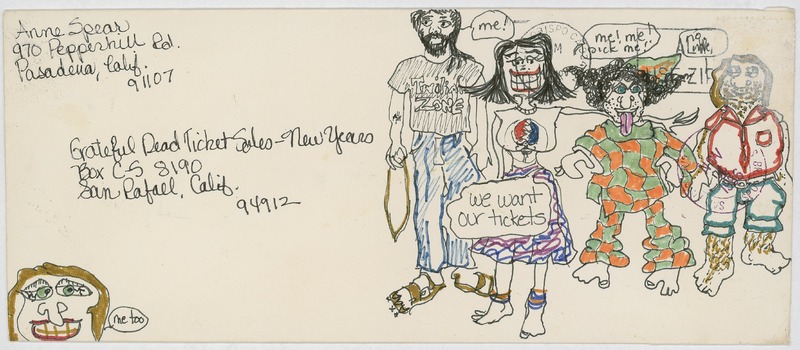 Anne Spear
970 Pepperhill Rd.
Pasadena, Calif.
91107
Grateful Dead Ticket Sales - New Years
Box C-S 8190
San Rafael, Calif.
94912
me!
me! me!
pick me!!
no,
me,
Twilight
Zone
we want
our tickets
me too